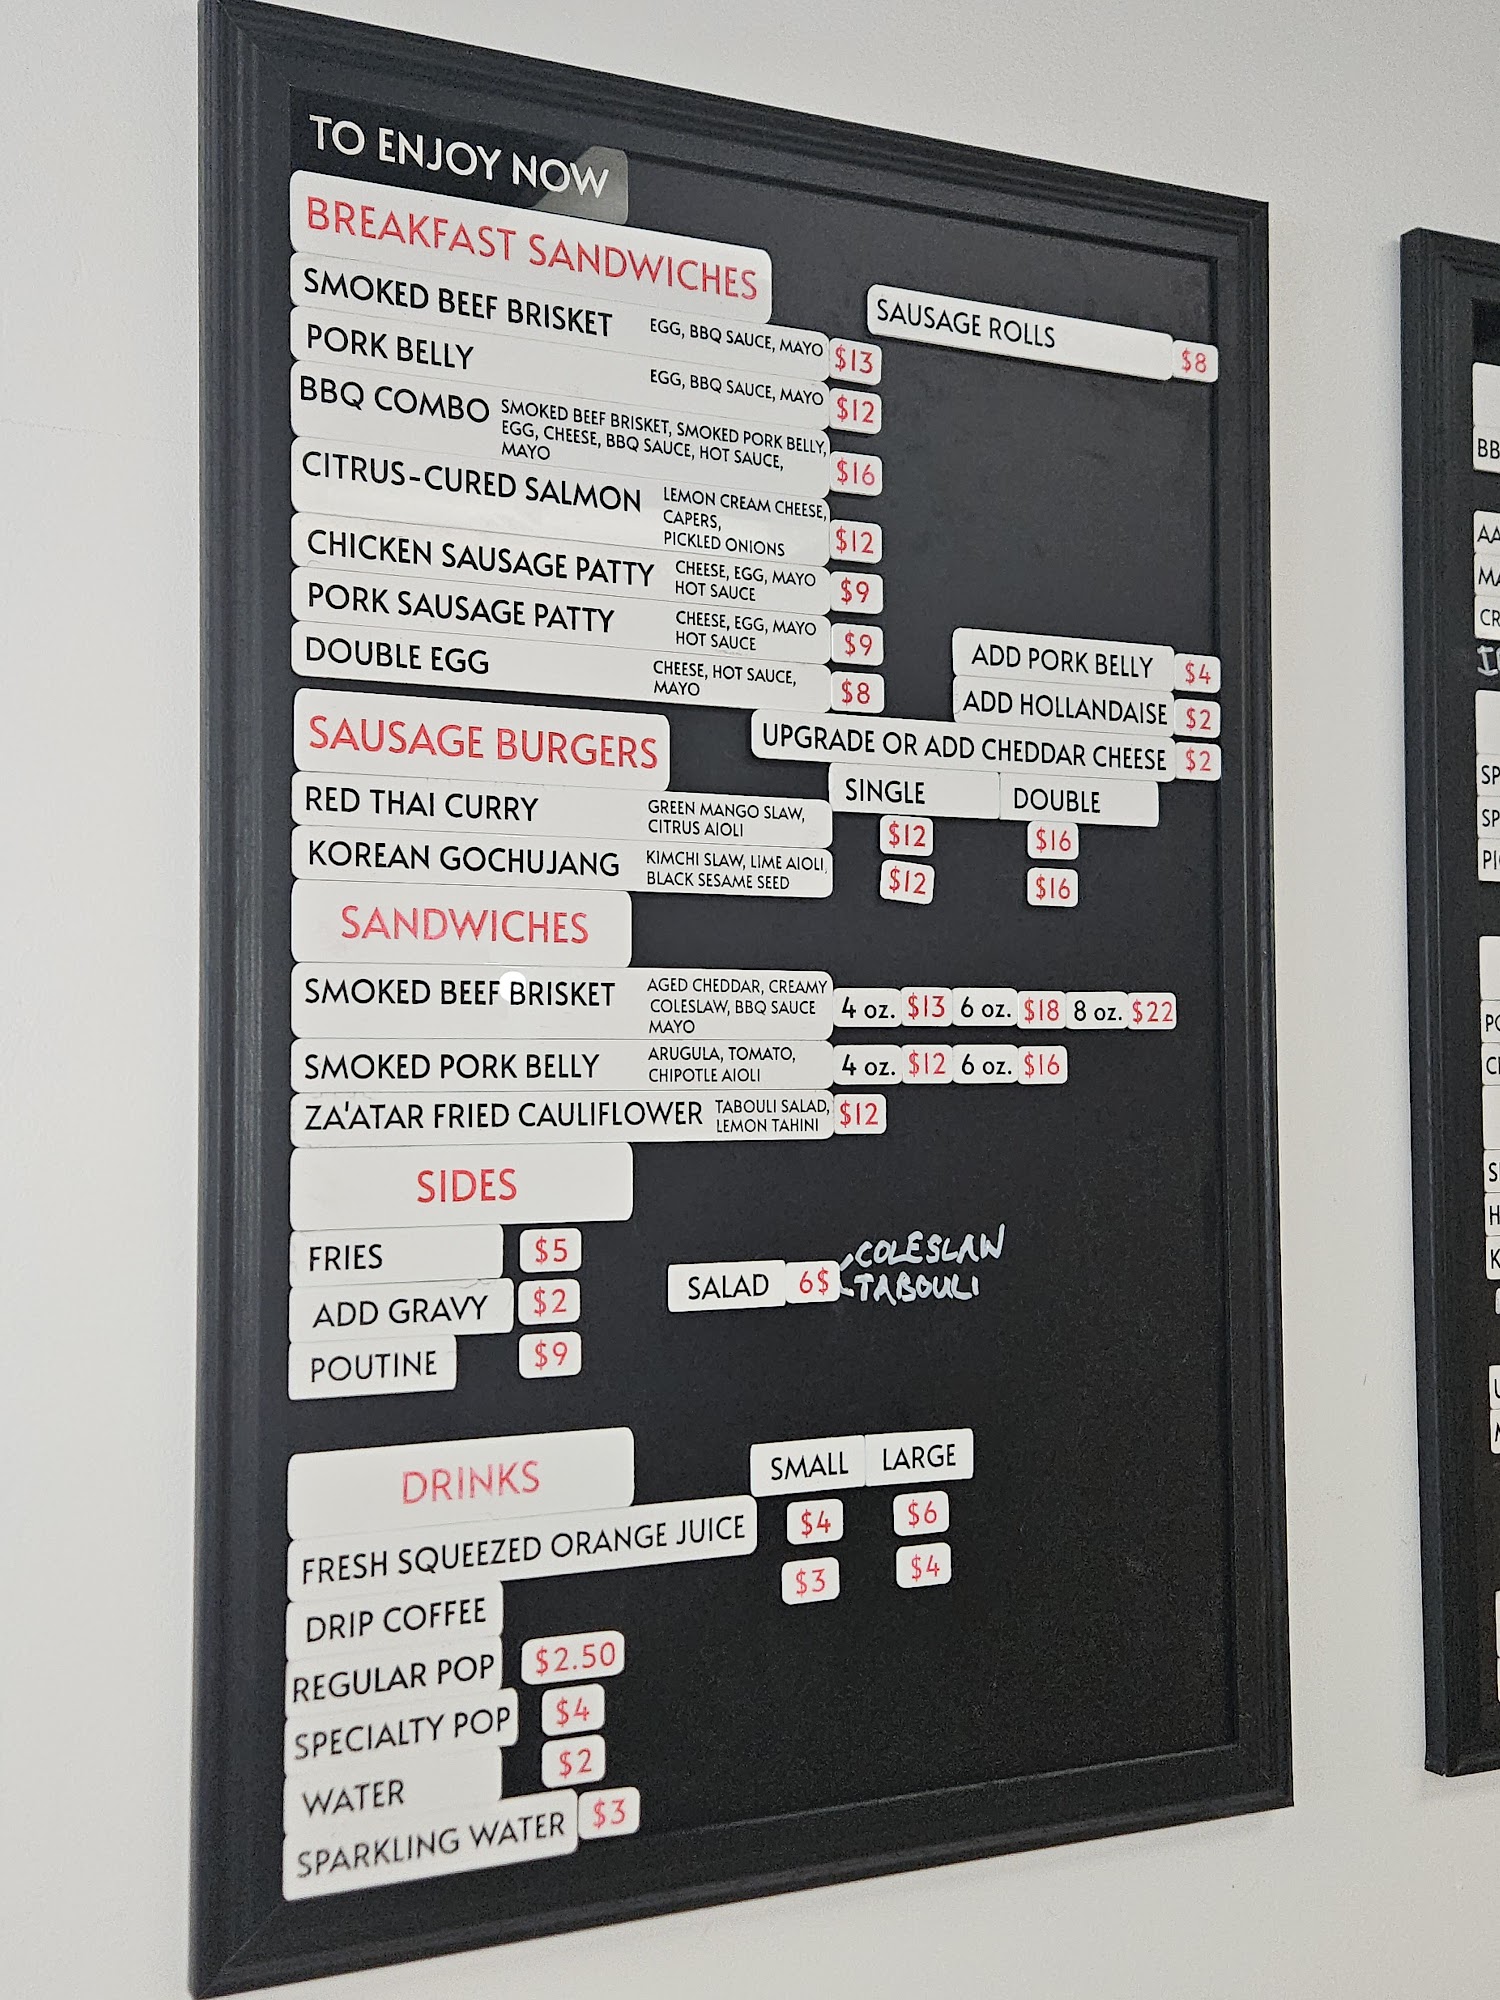 TO ENJOY NOW
BREAKFAST SANDWICHES
SMOKED BEEF BRISKET EGG, BBQ SAUCE, MAYO $13
SAUSAGE ROLLS $8
PORK BELLY EGG, BBQ SAUCE, MAYO $12
BBQ COMBO SMOKED BEEF BRISKET, SMOKED PORK BELLY,
EGG, CHEESE, BBQ SAUCE, HOT SAUCE,
MAYO $16
CITRUS-CURED SALMON LEMON CREAM CHEESE,
CAPERS,
PICKLED ONIONS $12
CHICKEN SAUSAGE PATTY CHEESE, EGG, MAYO
HOT SAUCE $9
PORK SAUSAGE PATTY CHEESE, EGG, MAYO
HOT SAUCE $9
DOUBLE EGG CHEESE, HOT SAUCE,
MAYO $8
ADD PORK BELLY $4
ADD HOLLANDAISE $2
UPGRADE OR ADD CHEDDAR CHEESE $2
SAUSAGE BURGERS
SINGLE DOUBLE
RED THAI CURRY GREEN MANGO SLAW,
CITRUS AIOLI $12 $16
KOREAN GOCHUJANG KIMCHI SLAW, LIME AIOLI,
BLACK SESAME SEED $12 $16
SANDWICHES
SMOKED BEEF BRISKET AGED CHEDDAR, CREAMY
COLESLAW, BBQ SAUCE
MAYO 4 oz. $13 6 oz. $18 8 oz. $22
SMOKED PORK BELLY ARUGULA, TOMATO,
CHIPOTLE AIOLI 4 oz. $12 6 oz. $16
ZA'ATAR FRIED CAULIFLOWER TABOULI SALAD,
LEMON TAHINI $12
SIDES
FRIES $5
ADD GRAVY $2
POUTINE $9
SALAD 6$ COLESLAW
TABOULI
DRINKS
SMALL LARGE
FRESH SQUEEZED ORANGE JUICE $4 $6
DRIP COFFEE $3 $4
REGULAR POP $2.50
SPECIALTY POP $4
WATER $2
SPARKLING WATER $3
BB